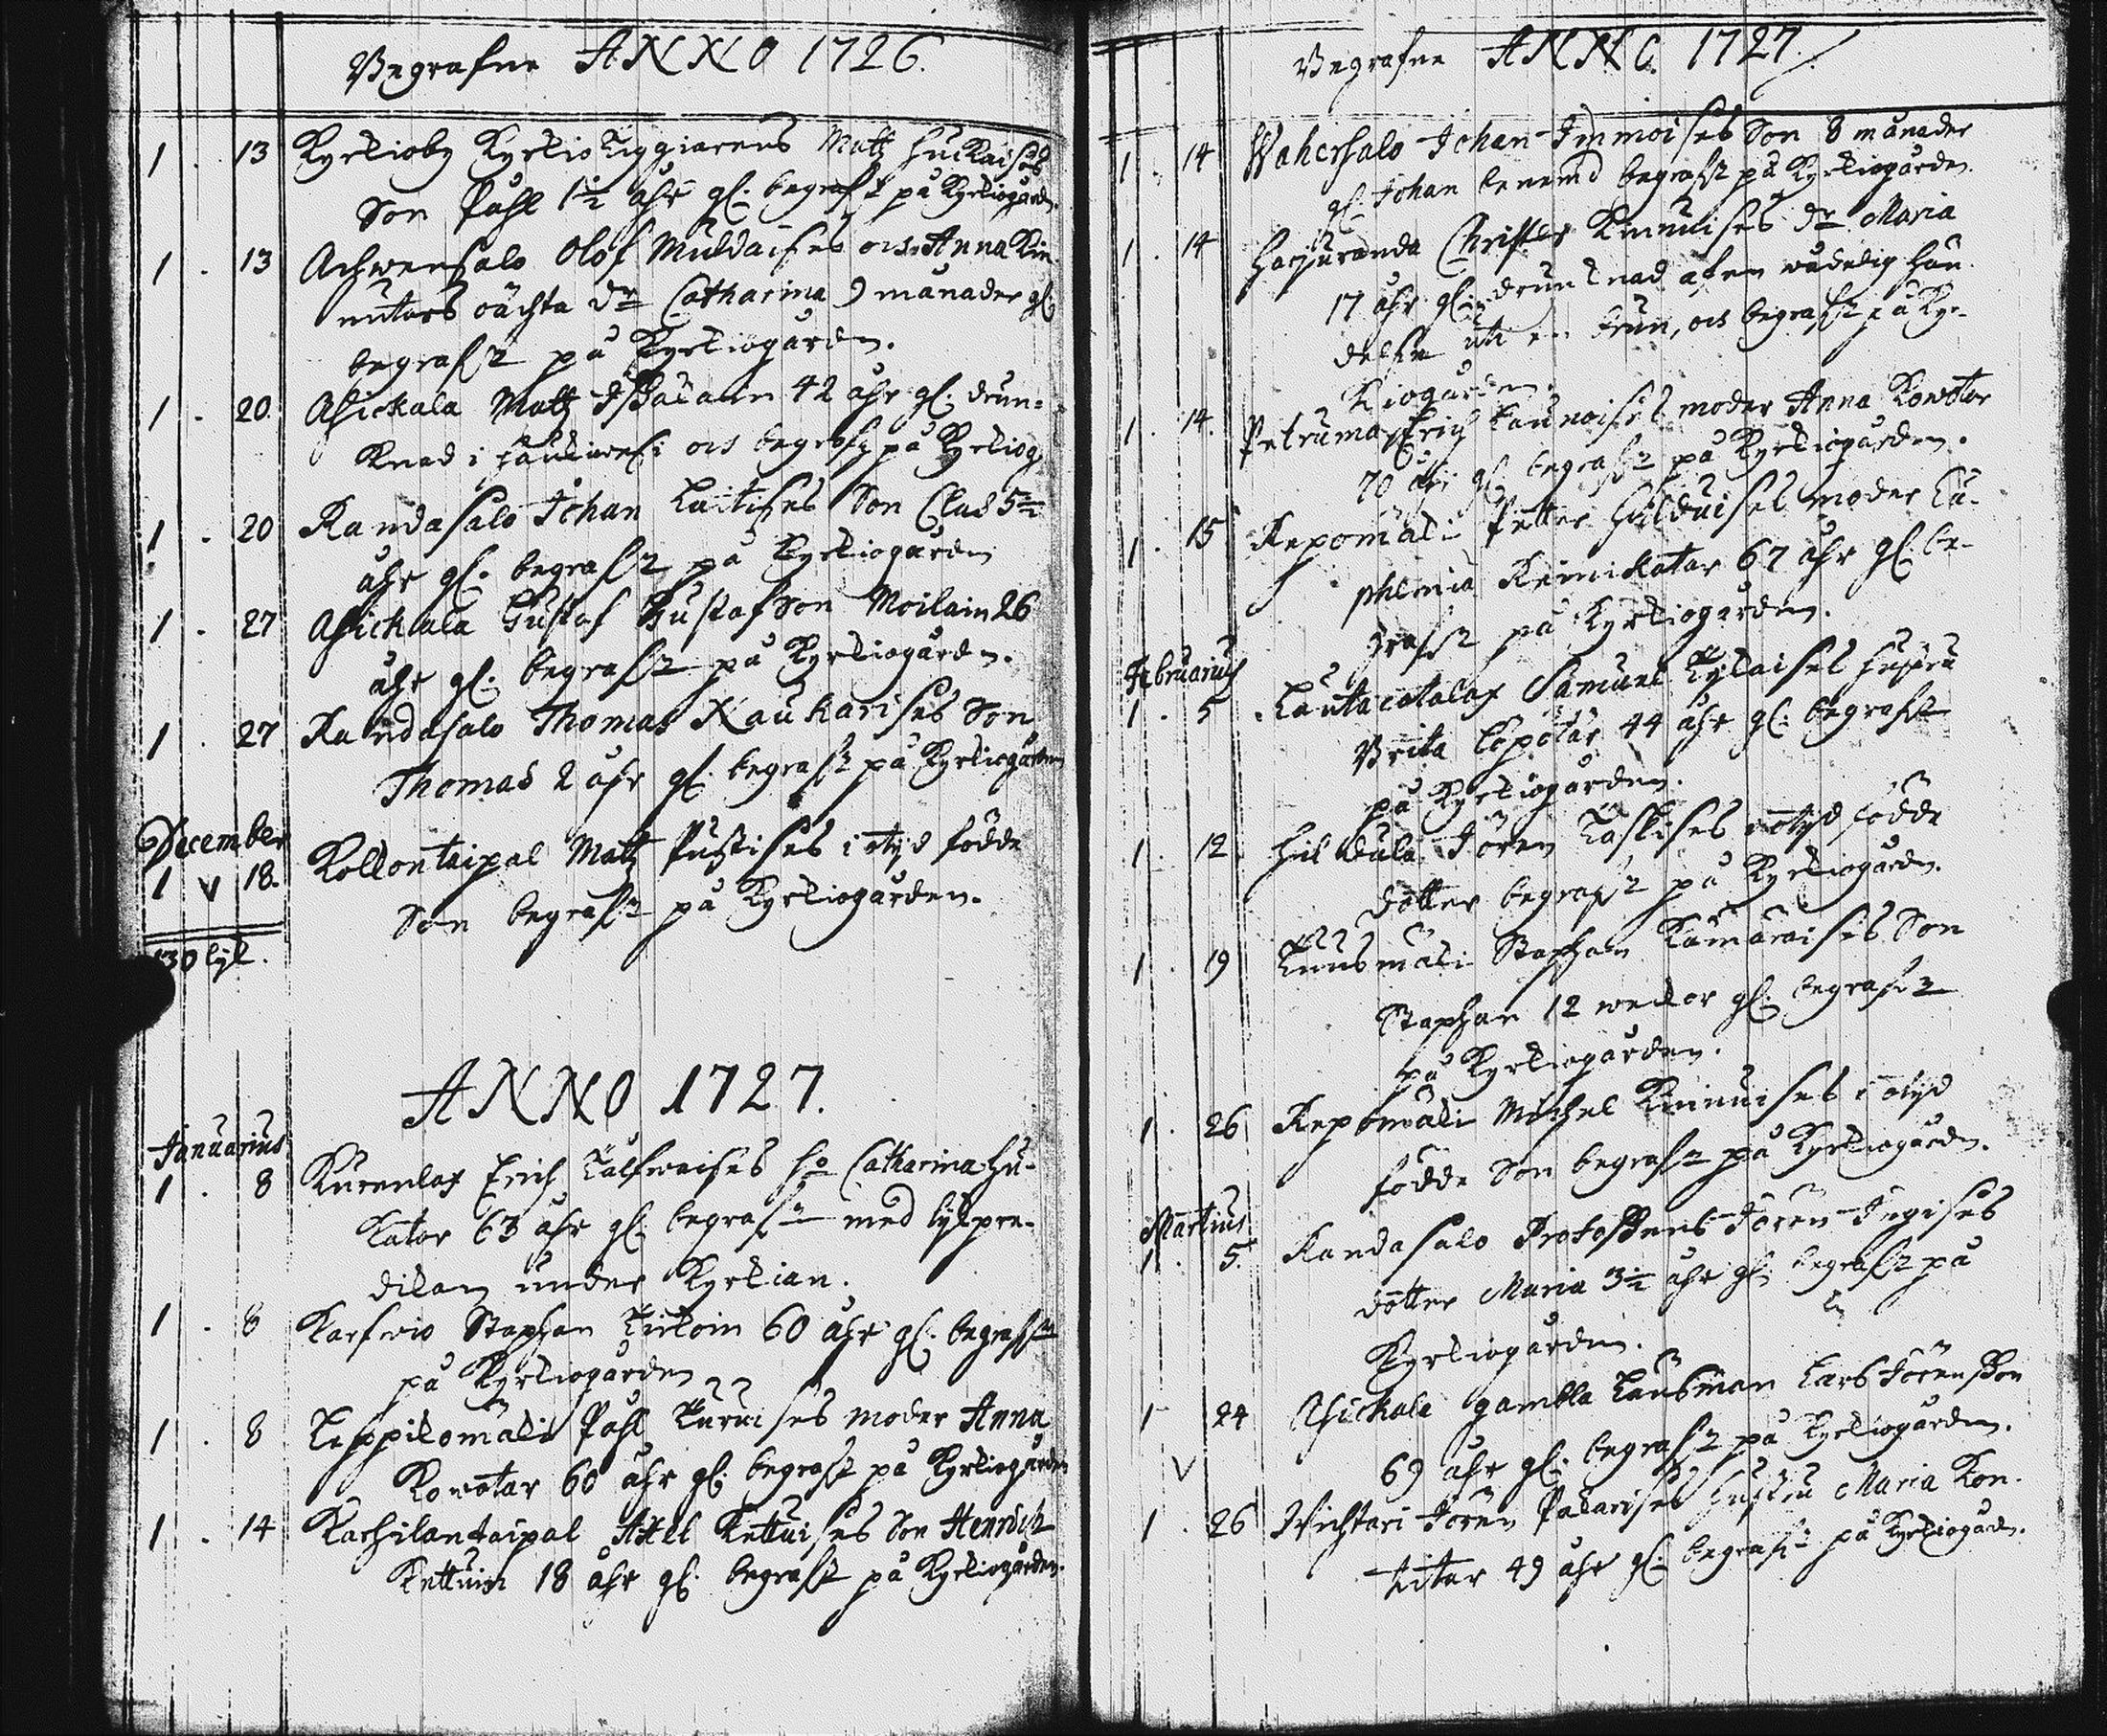 Begrafne ANNO 1726.
1 . 13 Kyrkioby Kyrkio Tiggiarens Matz Huckaises
Son Påhl 1½ åhr gl. begrafn på Kyrkiogården
1 . 13 Achwensalo Olof Muldaises och Anna Kin
nutars oächta dr Catharina 9 månader gl.
begrafn på Kyrkiogården.
1 . 20. Asickala Matz 42 åhr gl. drun-
knad i och begrafn på Kyrkiog
1 . 20 Randasalo Johan Laitises Son Clas 5½
åhr gl. begrafn på Kyrkiogården
1 . 27 Asickala Gustaf Gustafson Moilain 26
åhr gl. begrafn på Kyrkiogården.
1 . 27 Randasalo Thomas Naukarises Son
Thomas 2 åhr gl. begrafn på Kyrkiogården
December
1 v 18. Kollontaipal Matz Pustises i otijd födde
Son begrafn på Kyrkiogården.
130 lijk.
ANNO 1727.
Januarius
1 . 8 Kurenlax Erich Talfwaises ho Catharina Hu-
katar 63 åhr gl. begrafn med lijkpre-
dikan under Kyrkian.
1 . 8 Karfwio Staphan Kirkoin 60 åhr gl. begrafn
på Kyrkiogården
1 . 8 Leppilomäki Påhl Turuises moder Anna
Kowotar 60 åhr gl. begrafn på Kyrkiogården
1 . 14 Karhilantaipal Axel Kettuises Son Hendrich
Kettuin 18 åhr gl. begrafn på Kyrkiogården.
Begrafne ANNO. 1727.
1 . 14 Wahersalo Johan Immoises Son 8 månader
gl. Johan benemd begrafn på Kyrkiogården.
1 . 14 Harjuranda Christer Kinnuises dr Maria
17 åhr gl. drunknad af en wådelig hän-
delse uti en brun, och begrafn på Kyr-
kiogården.
1 . 14. Petrumax Erich Kaunoises moder Anna Kowotar
70 åhr gl. begrafn på Kyrkiogården.
1 . 15 Repomäki Petter Hulduises moder Eu-
phemia Reinikatar 67 åhr gl. be-
grafn på Kyrkiogården.
Februarius
1 . 5 Lautacatalax Samuel Kylaises hustru
Brita Copotar 44 åhr gl. begrafn
på Kyrkiogården.
1 . 12. Huldula Jören Taskises i otijd födde
dotter begrafn på Kyrkiogården.
1 . 19 Kuusmäki Staphan Kamaraises Son
Staphan 12 weckor gl. begrafn
på Kyrkiogården.
1 . 26 Repomäki Michel Kinnuises i otijd
födde Son begrafn på Kyrkiogården.
Martius
1 . 5. Randasalo Profossens Jören Ingises
dotter Maria 3½ åhr gl. begrafn på
Kyrkiogården.
1 24 Asickala gambla Länsman Lars Jörensson
69 åhr gl. begrafn på Kyrkiogården.
v
1 . 26 Wichtari Jören Pakarises hustru Maria Kon-
titar 49 åhr gl. begrafn på Kyrkiogården.